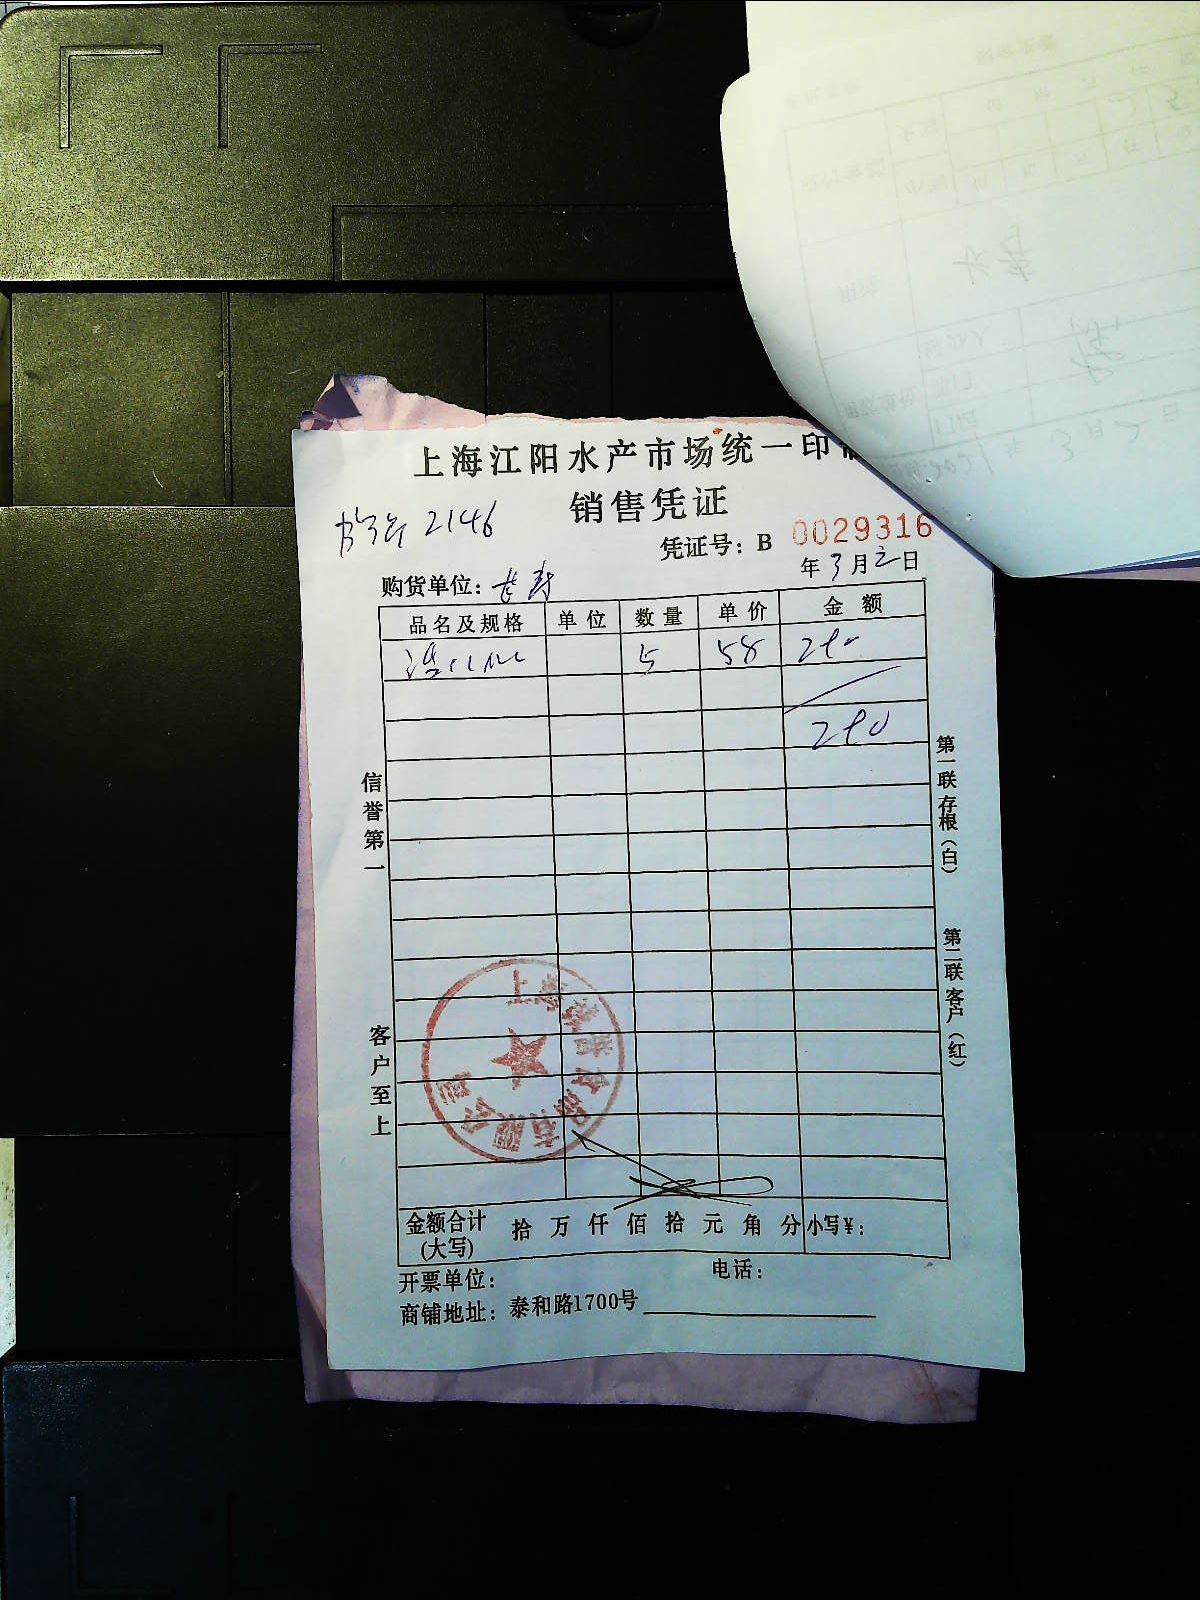 上海江阳水产市场统一印
销售凭证
2146
凭证号：B 0029316
年3月2日
购货单位：长寿
品名及规格 单位 数量 单价 金额
5 58 290
290
信誉第一
客户至上
第一联存根（白）
第二联客户（红）
金额合计（大写） 拾 万 仟 佰 拾 元 角 分 小写￥：
开票单位： 电话：
商铺地址：泰和路1700号